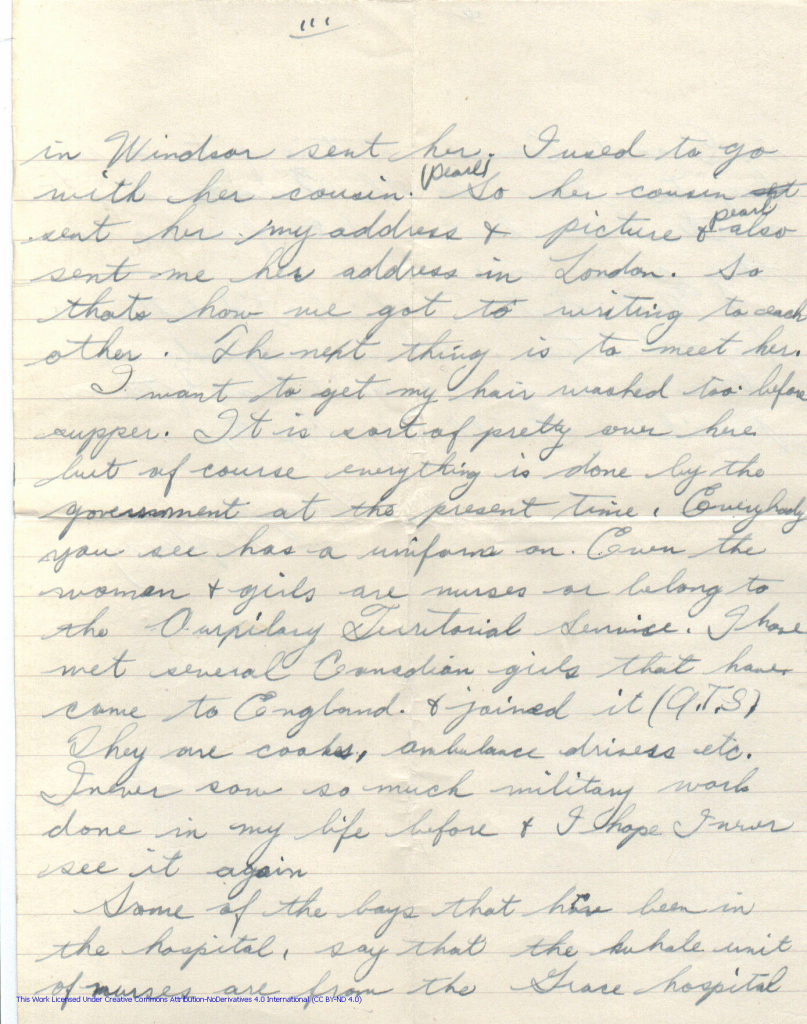 111
in Windsor sent her. I used to go
with her cousin. (Pearl) So her cousin
sent her my address & picture & pearl also
sent me her address in London. So
thats how we got to writing to each
other. The next thing is to meet her.
I want to get my hair washed too before
supper. It is sort of pretty over here
but of course everything is done by the
government at the present time. Everybody
you see has a uniform on. Even the
women & girls are nurses or belong to
the Auxpilary Territorial Service. I have
met several Canadian girls that have
come to England. & joined it (A.T.S)
They are cooks, ambulance drivers etc.
I never saw so much military work
done in my life before & I hope I never
see it again
Some of the boys that have been in
the hospital, say that the whole unit
of nurses are from the Grace hospital
This Work Licensed Under Creative Commons Attribution-NoDerivatives 4.0 International (CC BY-ND 4.0)